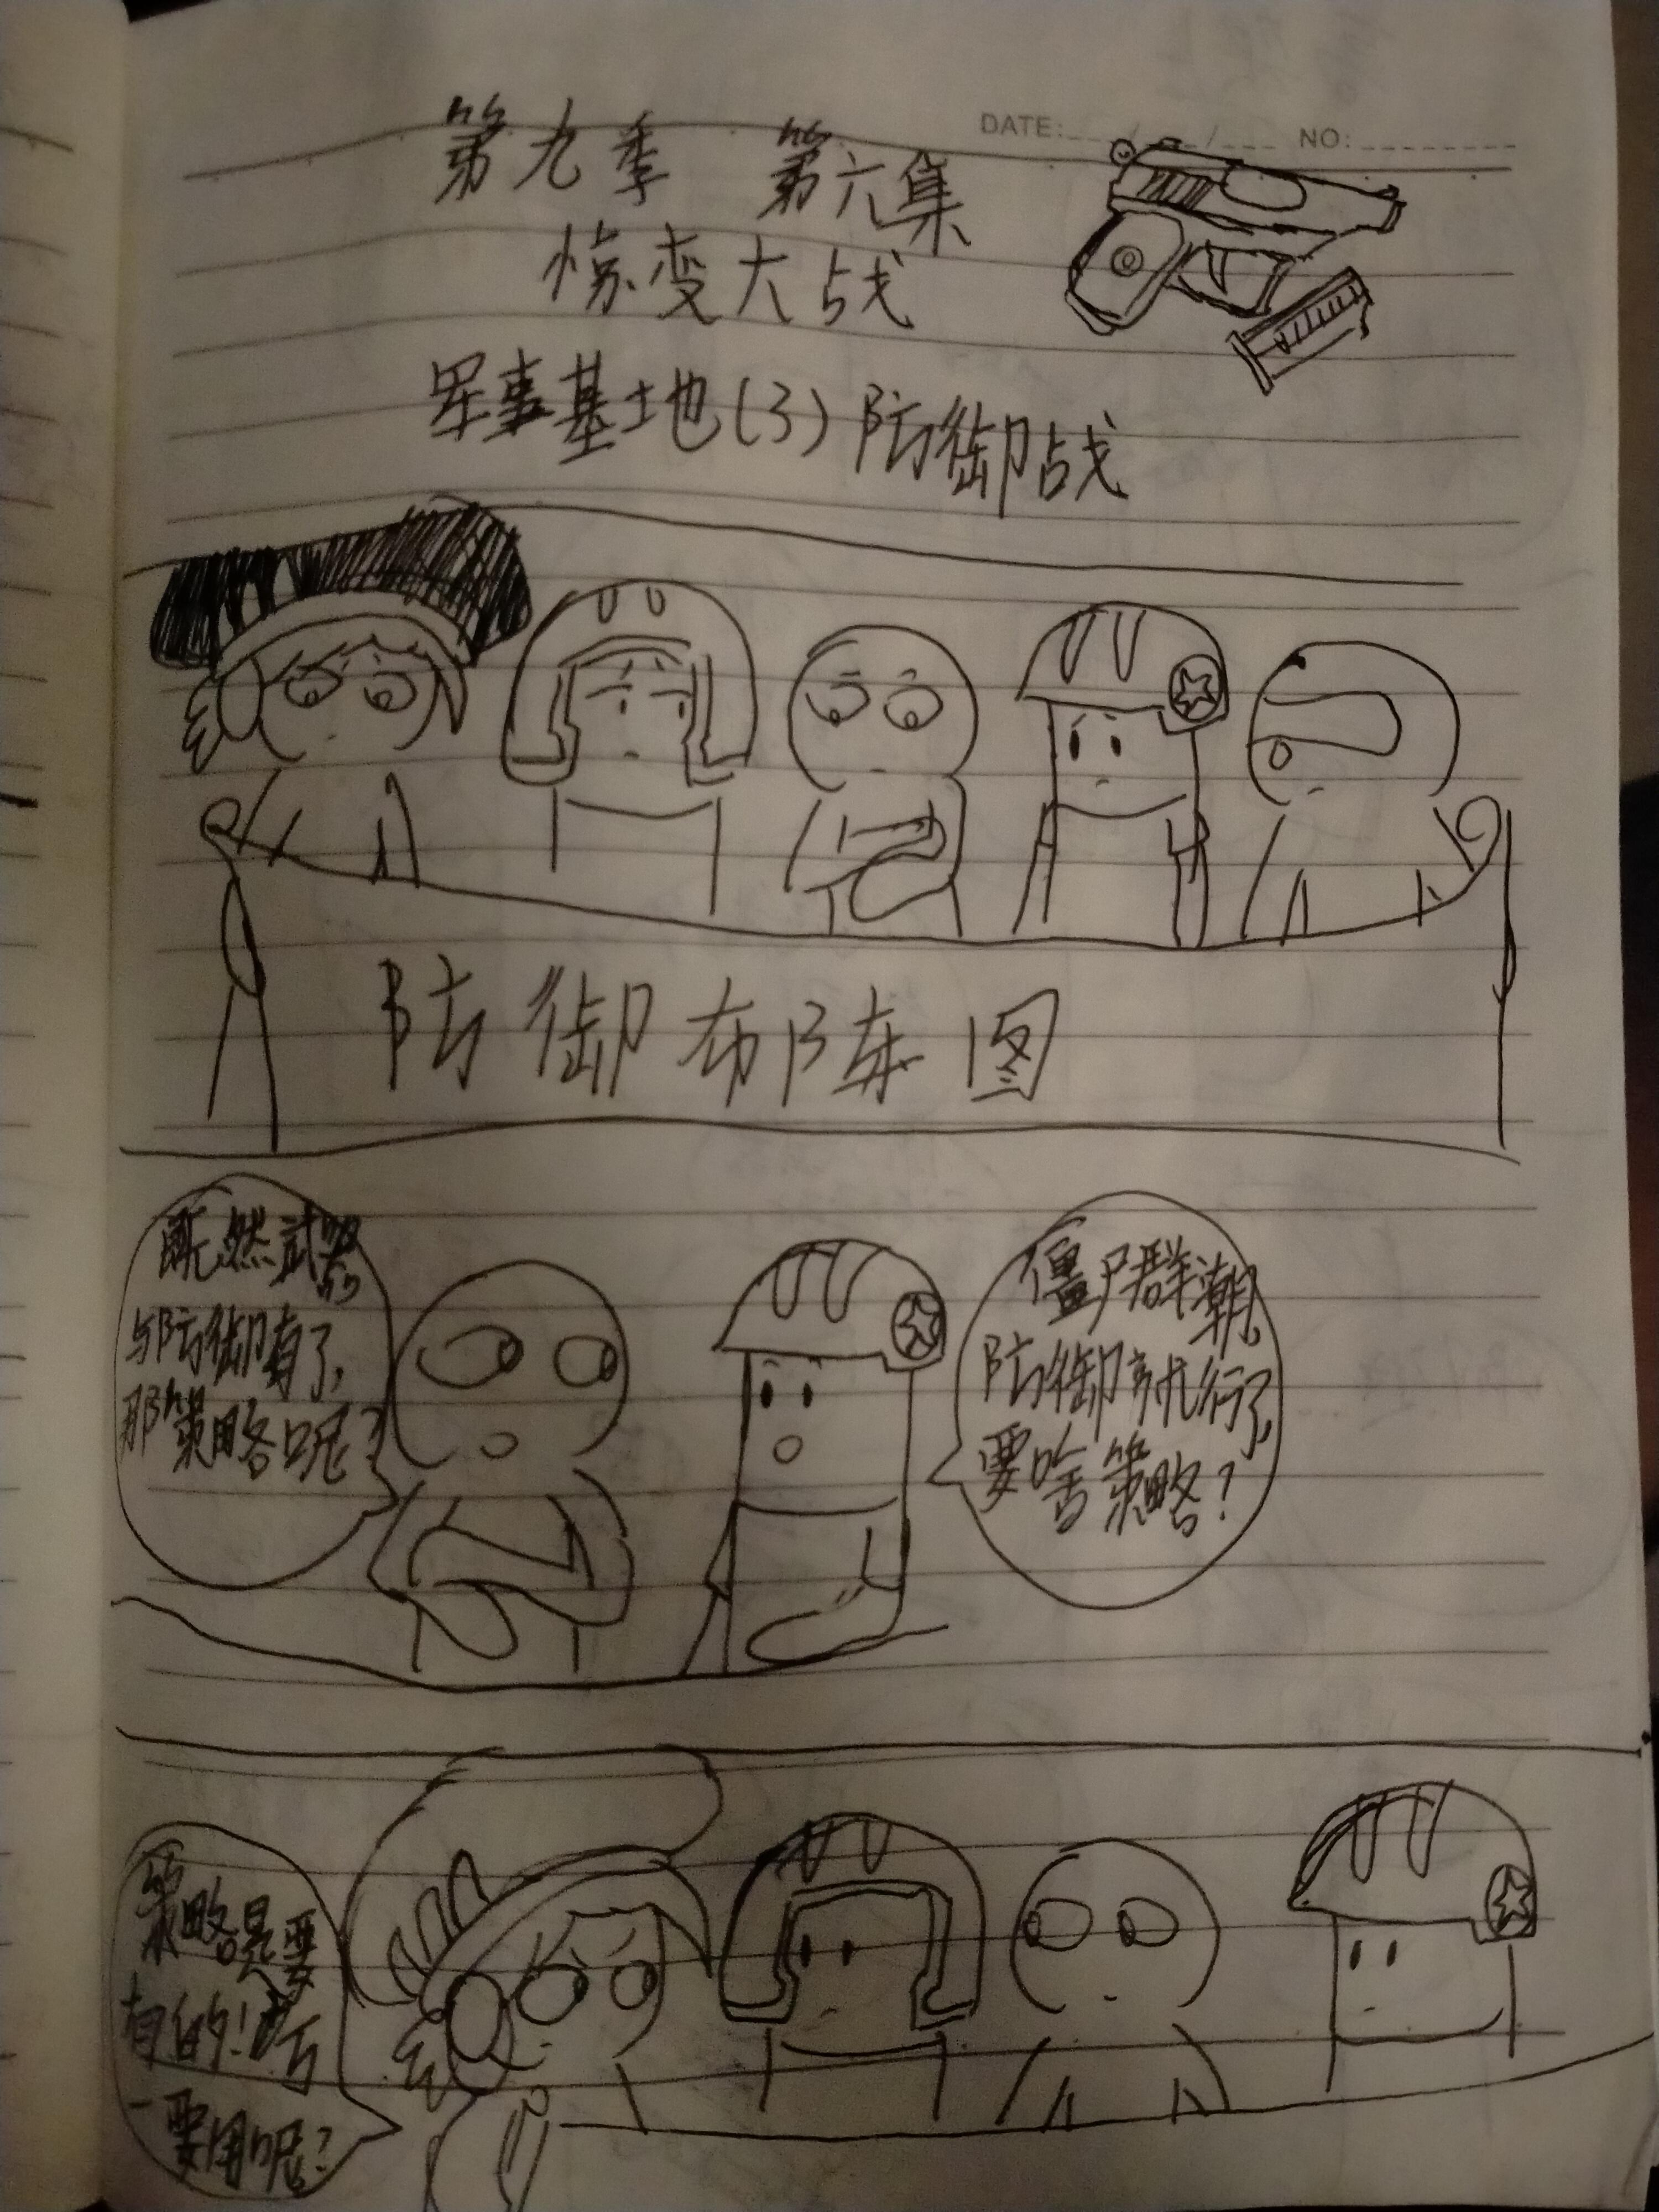 DATE: / / NO:
第九季 第六集
惊变大战
军事基地(3)防御战
防御布阵图
既然武器
与防御有了,
那策略呢?
僵尸群潮,
防御就行了,
要啥策略?
策略是要
有的!万
一要用呢?